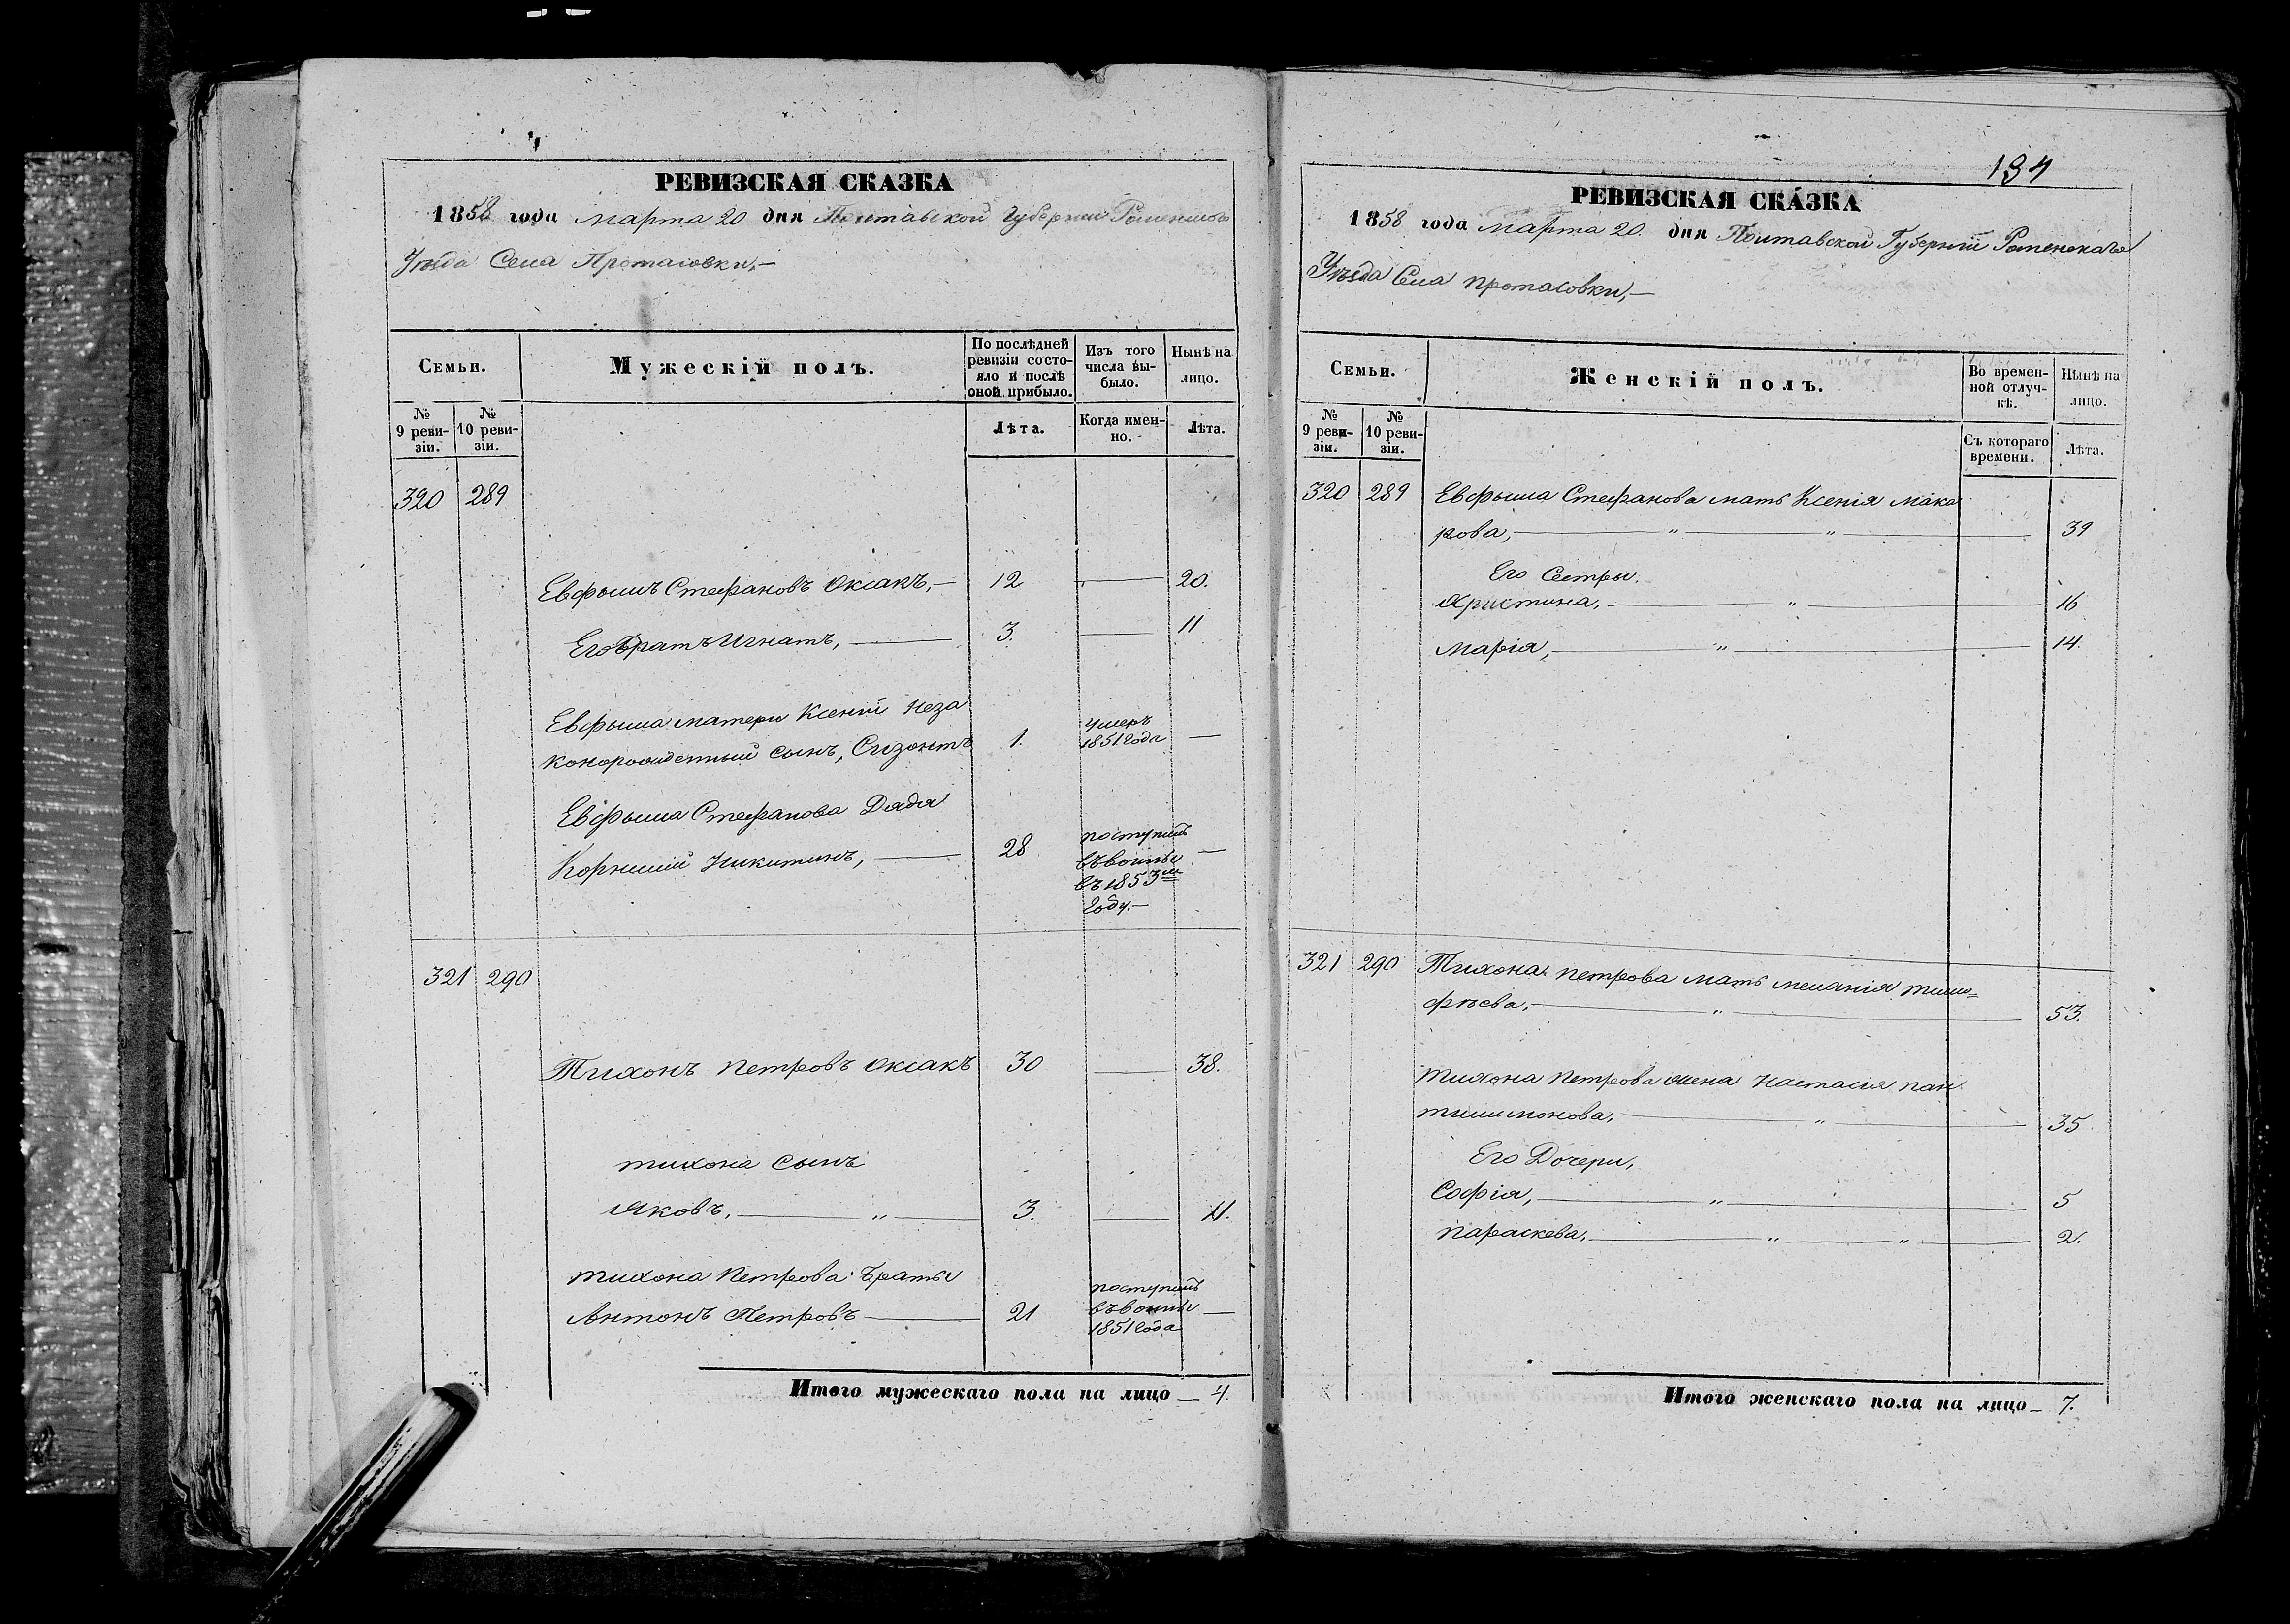 РЕВИЗСКАЯ СКАЗКА
1858 года Марта 20 дня Полтавской Губернии Роменскаго
Уѣзда Села Протасовки,—
Семьи.
Мужескій полъ.
По послѣдней ревизіи состояло и послѣ оной прибыло.
Изъ того числа выбыло.
Нынѣ на лицо.
№ 9 ревизіи.
№ 10 ревизіи.
Лѣта.
Когда именно.
Лѣта.
320 289
Евфимъ Стефановъ Оксакъ,— 12 — 20.
Его братъ Игнатъ, — 3. — 11
Евфима матери Ксеніи неза
конорожденный сынъ, Созонтъ 1. умеръ 1851 года —
Евфима Стефанова Дядя
Корнилій Никитинъ, — 28 поступилъ въ воины въ 1853м году.— —
321 290
Тихонъ Петровъ Оксакъ 30 — 38.
Тихона сынъ
Яковъ, — „ — 3. — 11.
Тихона Петрова братья
Антонъ Петровъ — 21 поступилъ въ воины 1851 года —
Итого мужескаго пола на лицо — 4.
134
РЕВИЗСКАЯ СКАЗКА
1858 года Марта 20. дня Полтавской Губерніи Роменскаго
Уѣзда Села Протасовки,—
Семьи.
Женскій полъ.
Во временной отлучкѣ.
Нынѣ на лицо.
№ 9 ревизіи.
№ 10 ревизіи.
Съ котораго времени.
Лѣта.
320 289 Евфима Стефанова мать Ксенія Мака
рова, — „ — „ — 39
Его Сестры.
Христина, — „ — 16
Марія, — „ — 14.
321 290 Тихона Петрова мать Меланія Тимо=
фѣева, — „ — 53.
Тихона Петрова жена Настасія Пан
тилимонова, — „ — 35
Его Дочери,
Софія, — „ — 5
Параскева, — „ — „ — 2.
Итого женскаго пола на лицо — 7.